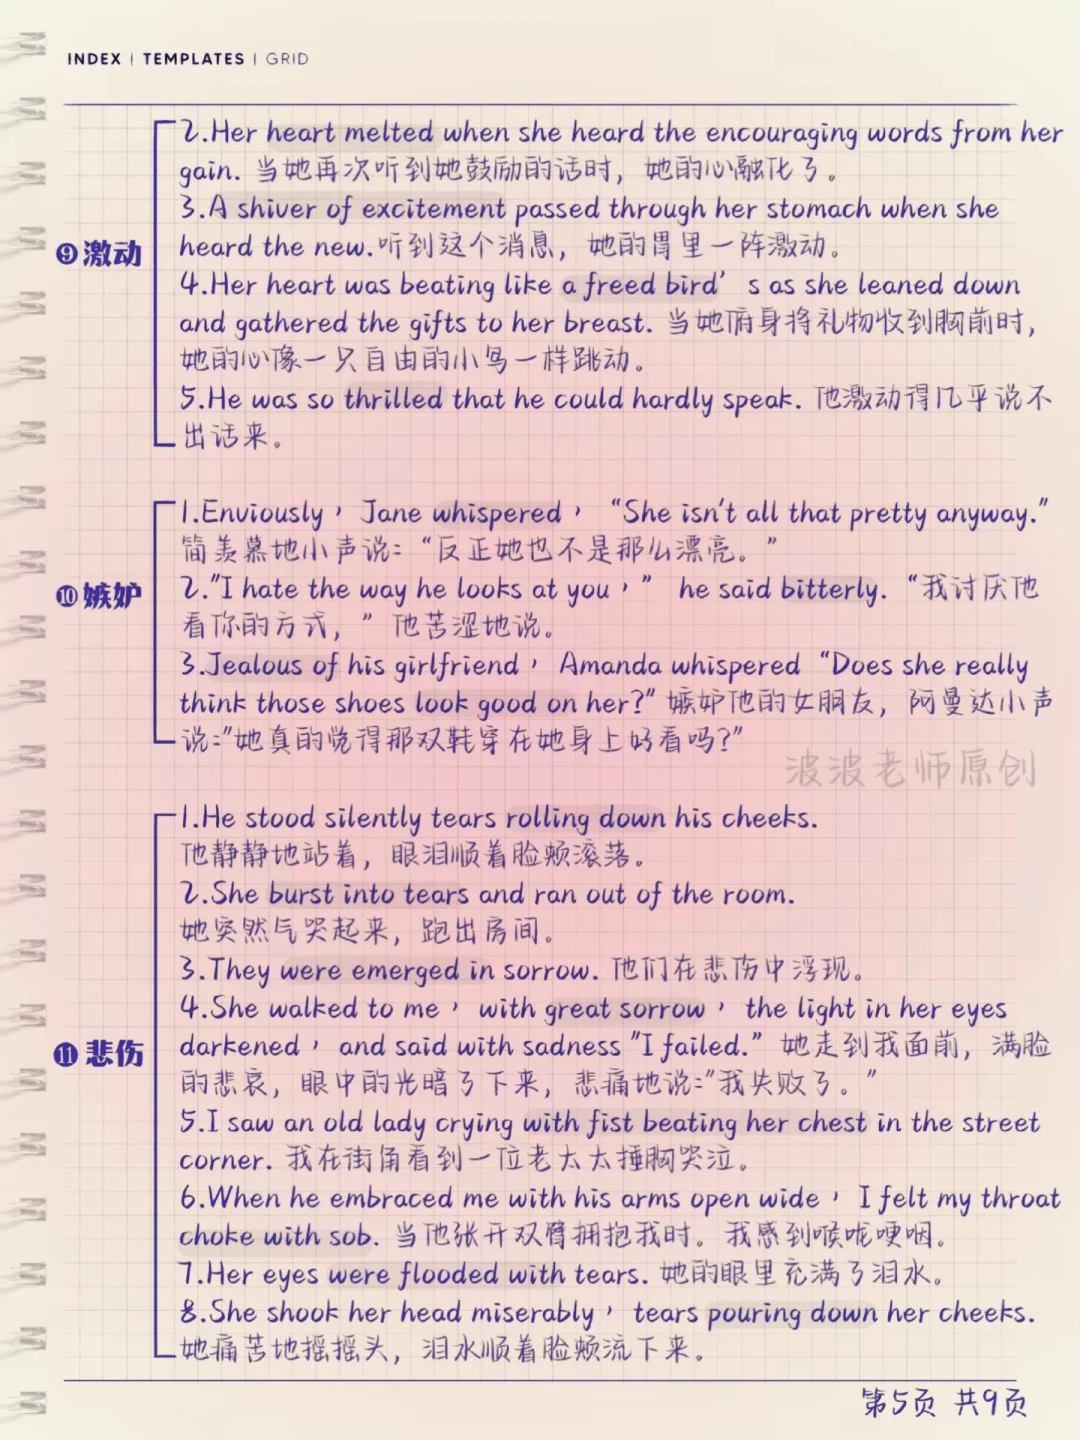 INDEX | TEMPLATES | GRID
2.Her heart melted when she heard the encouraging words from her
gain. 当她再次听到她鼓励的话时，她的心融化了。
3.A shiver of excitement passed through her stomach when she
heard the new.听到这个消息，她的胃里一阵激动。
⑨激动
4.Her heart was beating like a freed bird' s as she leaned down
and gathered the gifts to her breast. 当她俯身将礼物收到胸前时，
她的心像一只自由的小鸟一样跳动。
5.He was so thrilled that he could hardly speak. 他激动得几乎说不
出话来。
1.Enviously，Jane whispered，“She isn't all that pretty anyway.”
简羡慕地小声说：“反正她也不是那么漂亮。”
⑩嫉妒
2.“I hate the way he looks at you，” he said bitterly. “我讨厌他
看你的方式，”他苦涩地说。
3.Jealous of his girlfriend，Amanda whispered “Does she really
think those shoes look good on her?” 嫉妒他的女朋友，阿曼达小声
说：“她真的觉得那双鞋穿在她身上好看吗?”
波波老师原创
1.He stood silently tears rolling down his cheeks.
他静静地站着，眼泪顺着脸颊滚落。
2.She burst into tears and ran out of the room.
她突然气哭起来，跑出房间。
3.They were emerged in sorrow. 他们在悲伤中浮现。
4.She walked to me，with great sorrow，the light in her eyes
⑪悲伤
darkened，and said with sadness “I failed.” 她走到我面前，满脸
的悲哀，眼中的光暗了下来，悲痛地说：“我失败了。”
5.I saw an old lady crying with fist beating her chest in the street
corner. 我在街角看到一位老太太捶胸哭泣。
6.When he embraced me with his arms open wide，I felt my throat
choke with sob. 当他张开双臂拥抱我时。我感到喉咙哽咽。
7.Her eyes were flooded with tears. 她的眼里充满了泪水。
8.She shook her head miserably，tears pouring down her cheeks.
她痛苦地摇摇头，泪水顺着脸颊流下来。
第5页 共9页